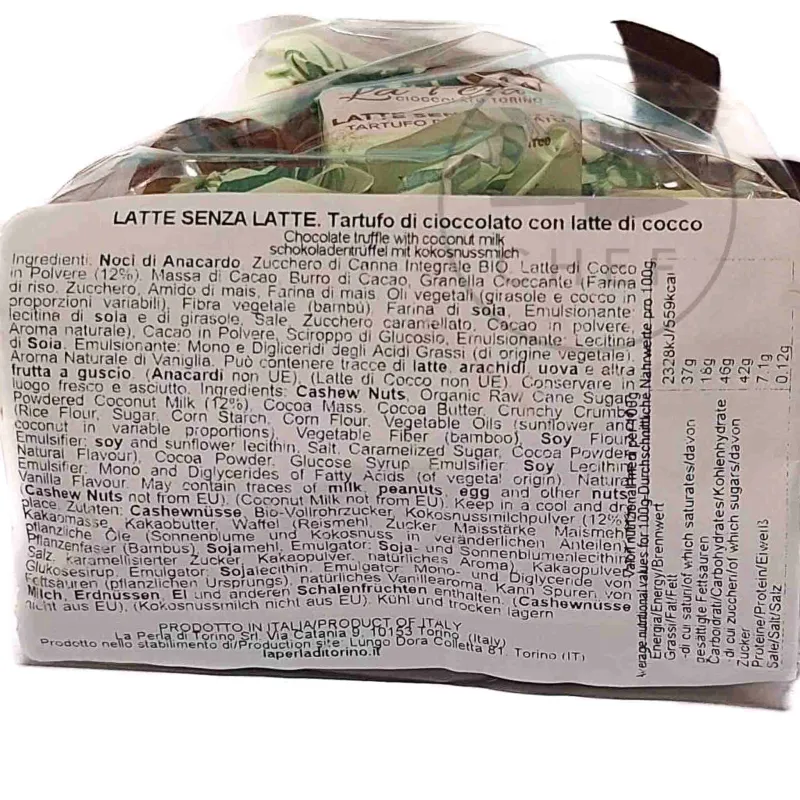 La Perla
CIOCCOLATO TORINO
LATTE
TARTUFO
CHEF
LATTE SENZA LATTE. Tartufo di cioccolato con latte di cocco
Chocolate truffle with coconut milk
schokoladentrüffel mit kokosnussmilch
Ingredienti: Noci di Anacardo, Zucchero di Canna Integrale BIO, Latte di Cocco
in Polvere (12%), Massa di Cacao, Burro di Cacao, Granella Croccante (Farina
di riso, Zucchero, Amido di mais, Farina di mais, Oli vegetali (girasole e cocco in
proporzioni variabili), Fibra vegetale (bambù), Farina di soia, Emulsionante:
lecitina di soia e di girasole, Sale, Zucchero caramellato, Cacao in polvere,
Aroma naturale), Cacao in Polvere, Sciroppo di Glucosio, Emulsionante: Lecitina
di Soia. Emulsionante: Mono e Digliceridi degli Acidi Grassi (di origine vegetale).
Aroma Naturale di Vaniglia. Può contenere tracce di latte, arachidi, uova e altra
frutta a guscio. (Anacardi non UE), (Latte di Cocco non UE). Conservare in
luogo fresco e asciutto. Ingredients: Cashew Nuts, Organic Raw Cane Sugar,
Powdered Coconut Milk (12%), Cocoa Mass, Cocoa Butter, Crunchy Crumb
(Rice Flour, Sugar, Corn Starch, Corn Flour, Vegetable Oils (sunflower and
coconut in variable proportions), Vegetable Fiber (bamboo), Soy Flour,
Emulsifier: soy and sunflower lecithin, Salt, Caramelized Sugar, Cocoa Powder,
Natural Flavour), Cocoa Powder, Glucose Syrup, Emulsifier: Soy Lecithin,
Emulsifier: Mono and Diglycerides of Fatty Acids (of vegetal origin), Natural
Vanilla Flavour. May contain traces of milk, peanuts, egg and other nuts.
(Cashew Nuts not from EU), (Coconut Milk not from EU). Keep in a cool and dry
place. Zutaten: Cashewnüsse, Bio-Vollrohrzucker, Kokosnussmilchpulver (12%),
Kakaomasse, Kakaobutter, Waffel (Reismehl, Zucker, Maisstärke, Maismehl,
pflanzliche Öle (Sonnenblume und Kokosnuss in veränderlichen Anteilen),
Pflanzenfaser (Bambus), Sojamehl, Emulgator: Soja- und Sonnenblumenlecithin,
Salz, karamellisierter Zucker, Kakaopulver, natürliches Aroma), Kakaopulver,
Glukosesirup, Emulgator: Sojalecithin, Emulgator: Mono- und Diglyceride von
Fettsäuren (pflanzlichen Ursprungs), natürliches Vanillearoma. Kann Spuren von
Milch, Erdnüssen, Ei und anderen Schalenfrüchten enthalten. (Cashewnüsse
nicht aus EU), (Kokosnussmilch nicht aus EU). Kühl und trocken lagern
PRODOTTO IN ITALIA/PRODUCT OF ITALY
La Perla di Torino Srl. Via Catania 9, 10153 Torino (Italy)
Prodotto nello stabilimento di/Production site: Lungo Dora Colletta 81, Torino (IT)
laperladitorino.it
Valori nutrizionali medi per 100g
Average nutritional values for 100g/Durchschnittliche Nahrwerte pro 100g
Energia/Energy/Brennwert 2328kJ/559kcal
Grassi/Fat/Fett 37g
-di cui saturi/of which saturates/davon
gesättigte Fettsäuren 18g
Carboidrati/Carbohydrates/Kohlenhydrate 46g
-di cui zuccheri/of which sugars/davon
Zucker 42g
Proteine/Protein/Eiweiß 7.1g
Sale/Salt/Salz 0.12g